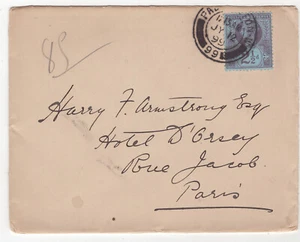 85
Harry F. Armstrong Esq
Hotel D'Orsey
Rue Jacob.
Paris